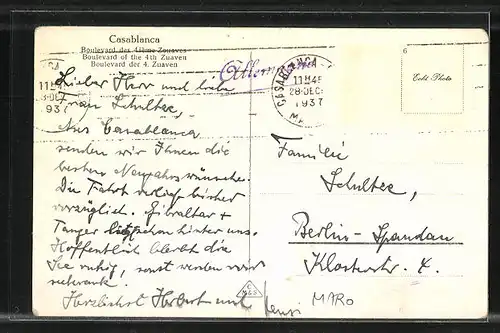 Casablanca
Boulevard des 4ième Zouaves
Boulevard of the 4th Zuaven
Boulevard der 4. Zuaven
Allemagne
CASABLANCA
11H45
28-DEC
1937
11H45
8-DEC
937
6
Echt Photo
Lieber Herr und liebe
Frau Schultze,
Aus Casablanca
senden wir Ihnen die
besten Neujahrswünsche.
Die Fahrt verlief bisher
vorzüglich. Gibraltar +
Tanger hinter uns.
Hoffentlich bleibt die
See ruhig, sonst werden wir
seekrank.
Herzlichst Herbert und
Familie
Schultze,
Berlin-Spandau
Klosterstr. 4.
MARO